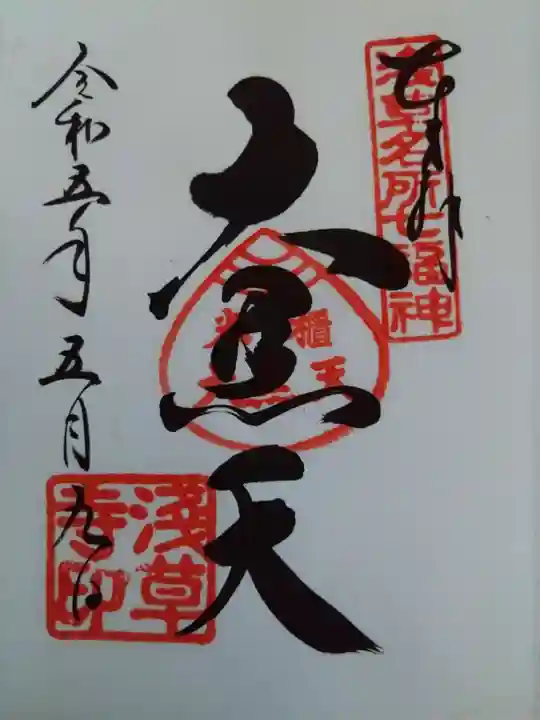 奉拝
浅草名所七福神
大黒天
令和五年五月九日
淺草
寺印